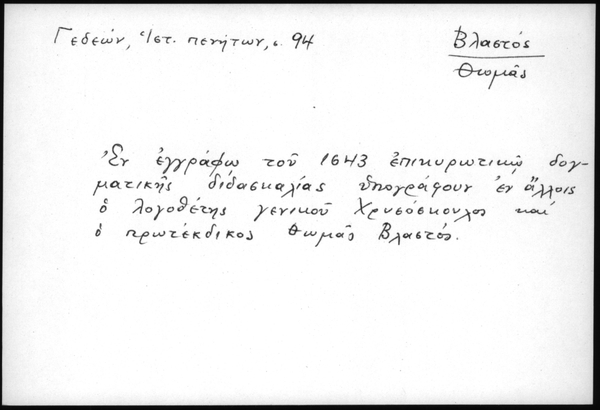 Γεδεών, Ἱστ. πενήτων, σ. 94
Βλαστός
Θωμᾶς
Ἐν ἐγγράφῳ τοῦ 1643 ἐπικυρωτικῷ δογ-
ματικῆς διδασκαλίας ὑπογράφουν ἐν ἄλλοις
ὁ λογοθέτης γενικοῦ Χρυσόσκουλος καὶ
ὁ πρωτέκδικος Θωμᾶς Βλαστός.